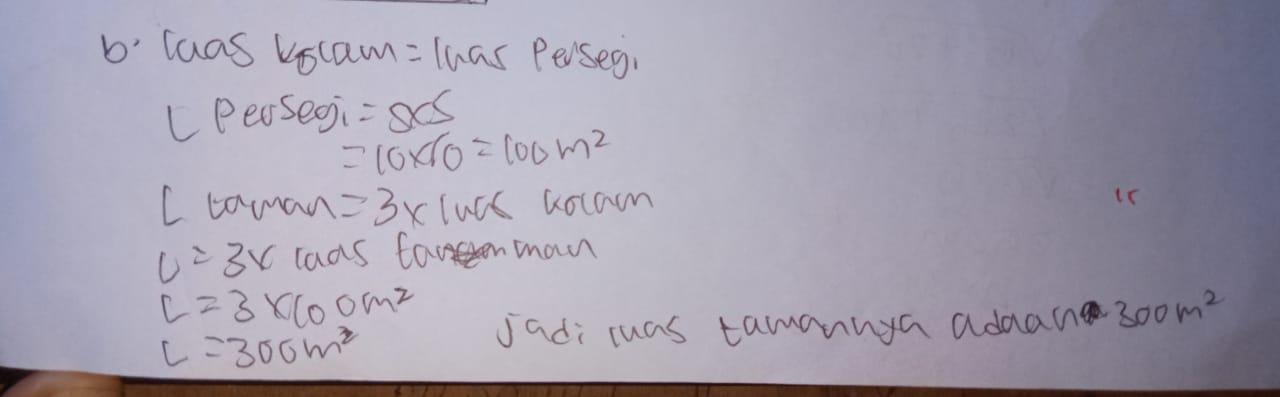 b. luas kolam = luas Persegi
L Persegi = sxs
= 10x10 = 100 m²
L taman = 3x luas kolam
L = 3x luas taman
L = 3 x 100 m²
L = 300 m²
jadi luas tamannya adaan 300 m²